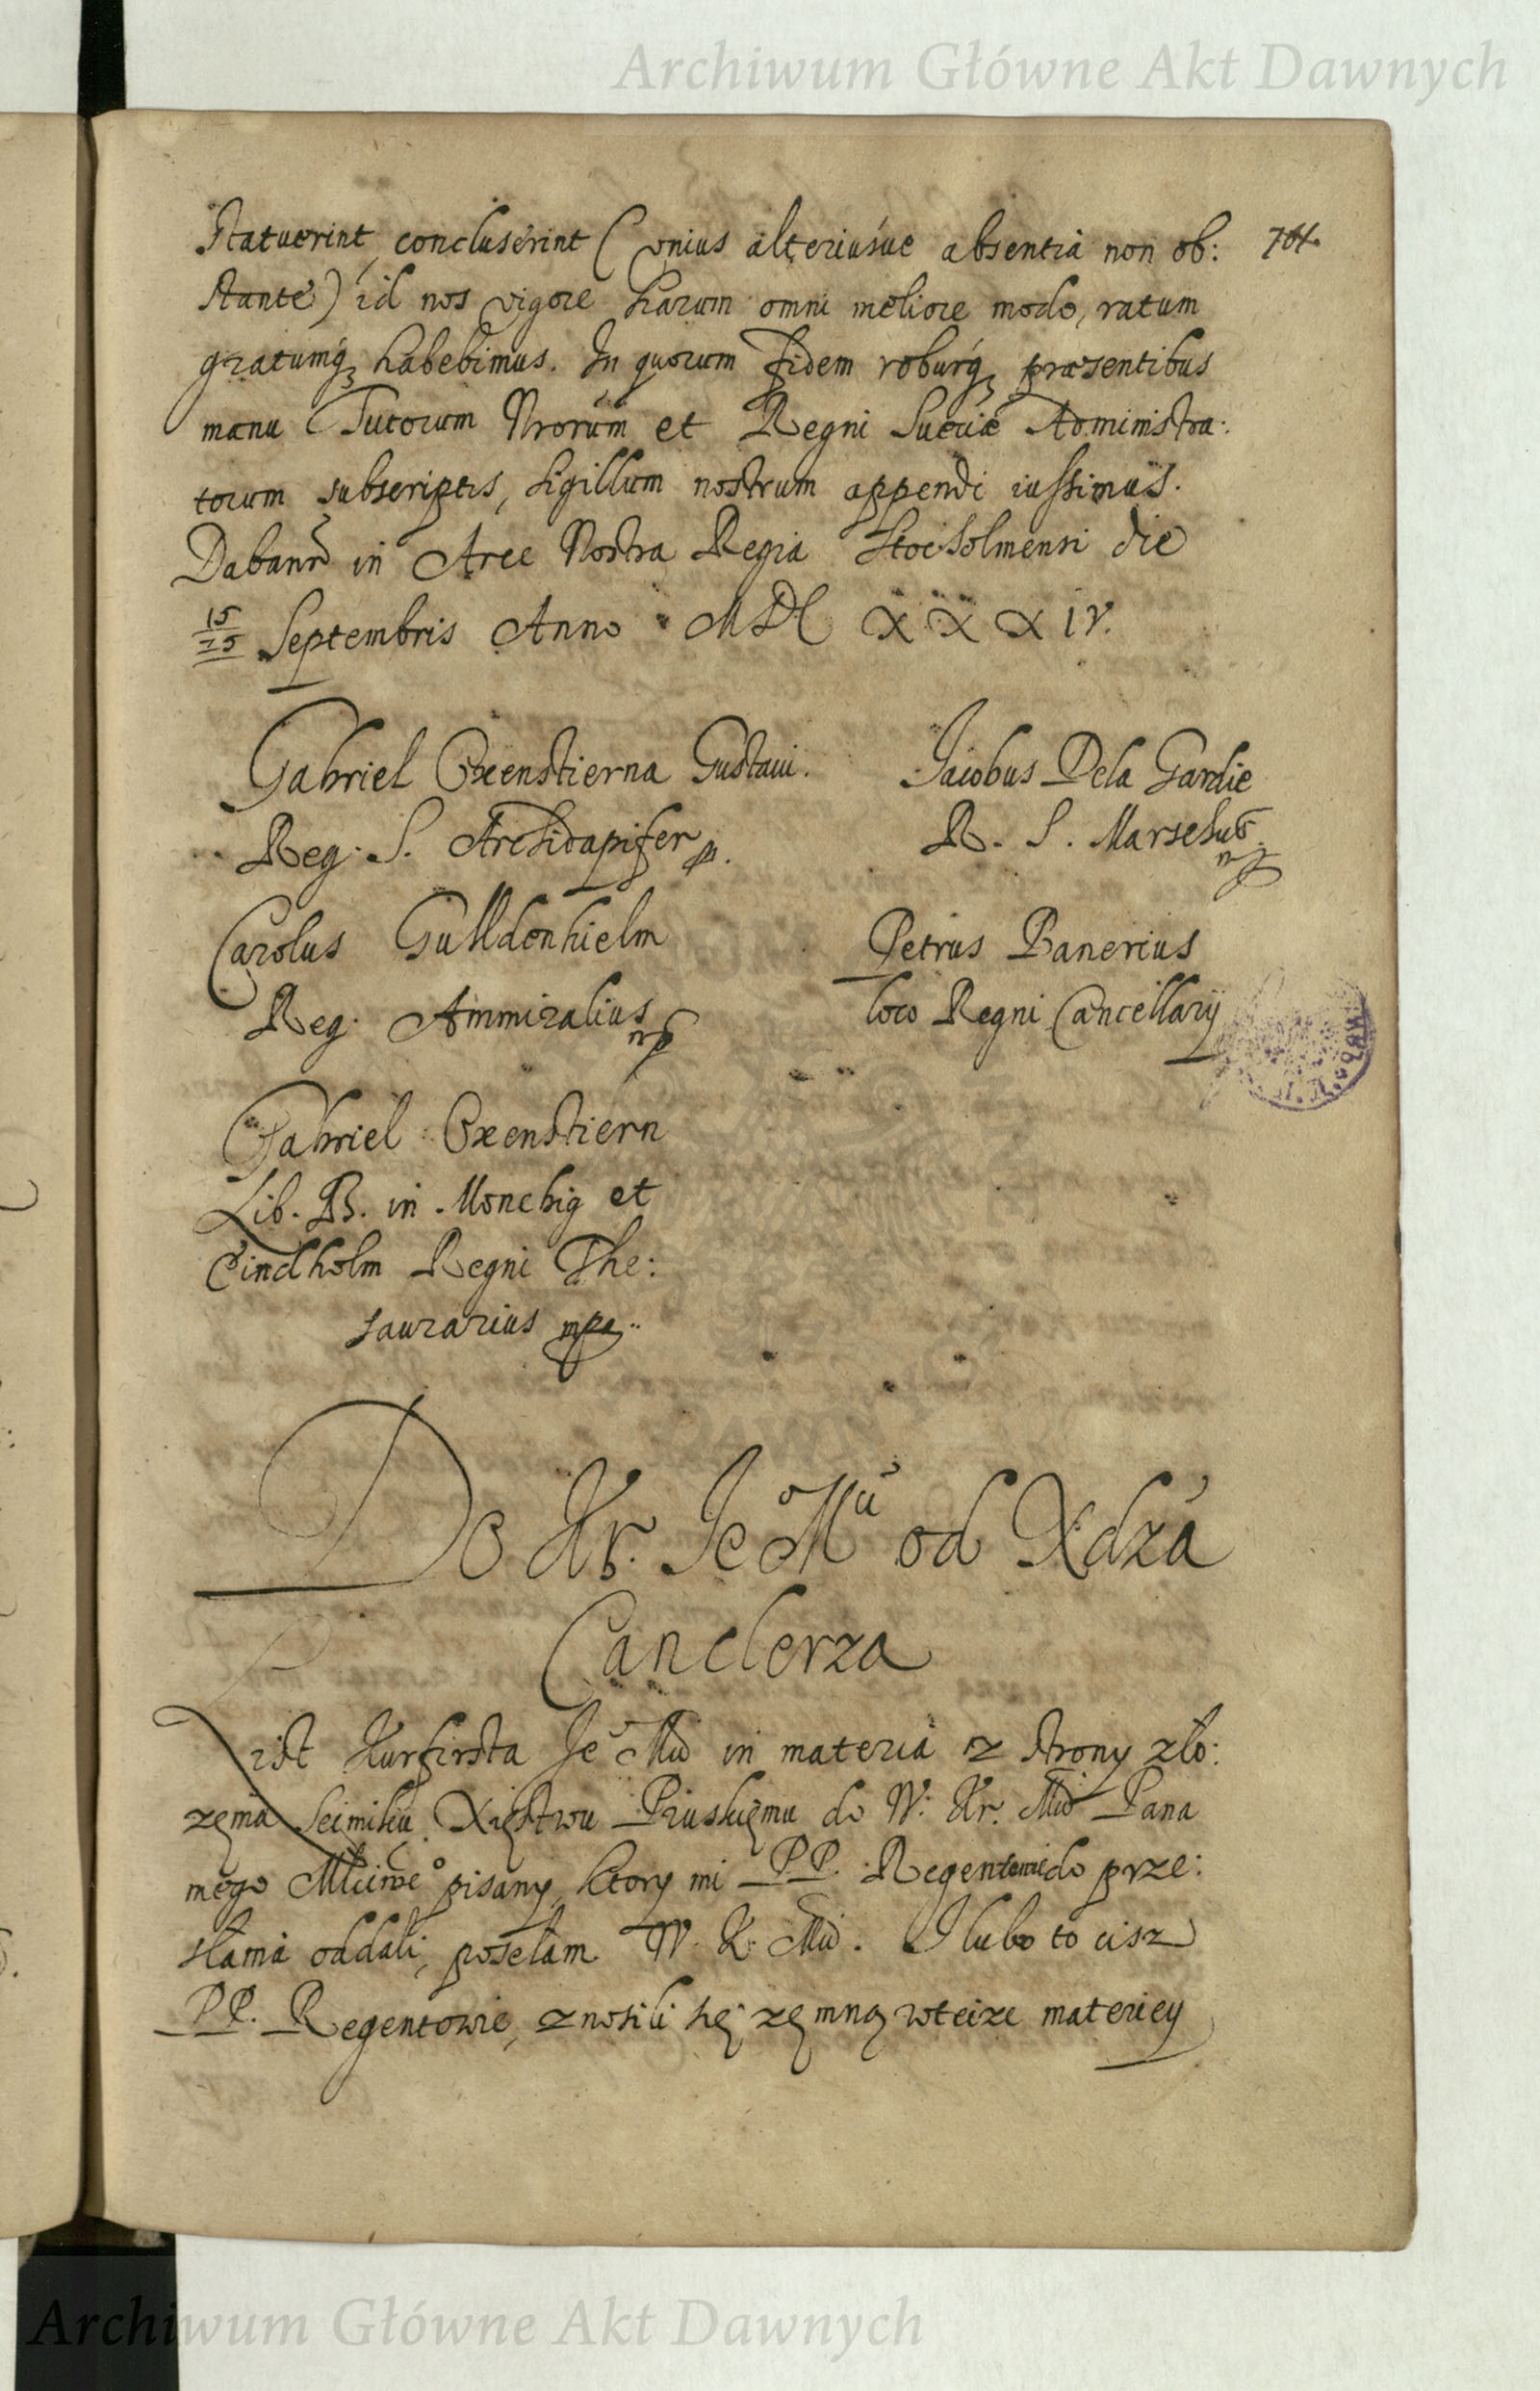 Archiwum Główne Akt Dawnych
statuerint, concluserint (unius alteriusue absentia non ob: 704.
stante) id nos vigore harum omni meliore modo, ratum
gratumq3 habebimus. In quorum fidem roburq3 præsentibus
manu Tutorum Nrorum et Regni Sueciæ Administra:
torum subscriptis, sigillum nostrum appendi iussimus.
Dabantr in Arce Nostra Regia Stocholmensi die
15/25 Septembris Anno MDC XXXIV.
Gabriel Oxenstierna Gustaui. Jacobus Dela Gardie
Reg. S. Archidapifer R. S. Marschus mp
Carolus Gulldenhielm Petrus Banerius
Reg. Ammiralius mp loco Regni Cancellarij
Gabriel Oxenstiern
Lib. B. in Morchig et
Lindholm Regni The:
saurarius mpa.
Do Kr. Je° Mci od Xdza
Canclerza
List Kurfirsta Je° Mci in materia z strony zło:
zęnia Seimiku Xięstwu Pruskięmu do W. Kr. Mci Pana
mego Mciwe° pisany, ktory mi PP. Regentowie do prze:
słania oddali, posełam W. K. Mci. I lubo to cisz
PP. Regentowie, znosili się zę mną wteize materiey
Archiwum Główne Akt Dawnych